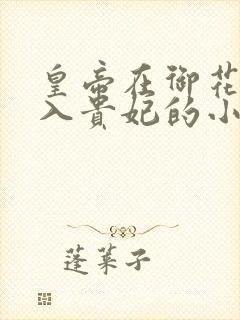 皇帝在御花
入贵妃的小
蓬莱子